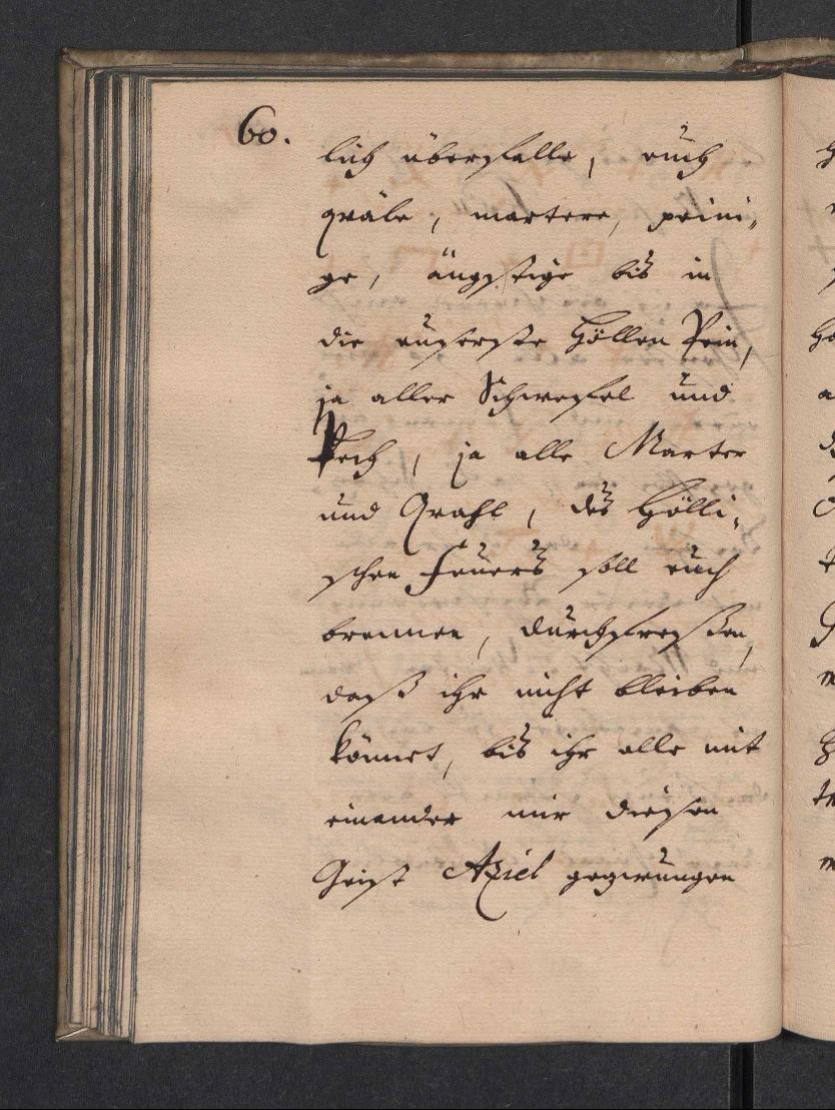 60.
lich überfalle, euch
qväle, martere, peini-
ge, ängstige bis in
die eüserste Höllen Pein,
ja aller Schwefel und
Pech, ja alle Marter
und Qvahl, des Hölli-
schen Feuers soll euch
brennen, durchfreßen,
daß ihr nicht bleiben
könnet, bis ihr alle mit
einander mir diesen
Geist Aziel gezwungen